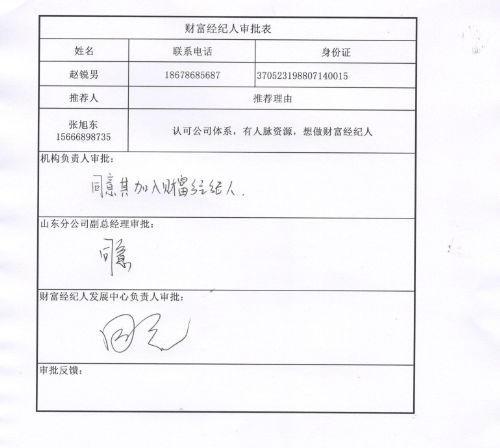 财富经纪人审批表
姓名 联系电话 身份证
赵锐男 18678685687 370523198807140015
推荐人 推荐理由
张旭东
15666898735
认可公司体系，有人脉资源，想做财富经纪人
机构负责人审批：
同意其加入财富经纪人.
山东分公司副总经理审批：
同意
财富经纪人发展中心负责人审批：
同意
审批反馈：